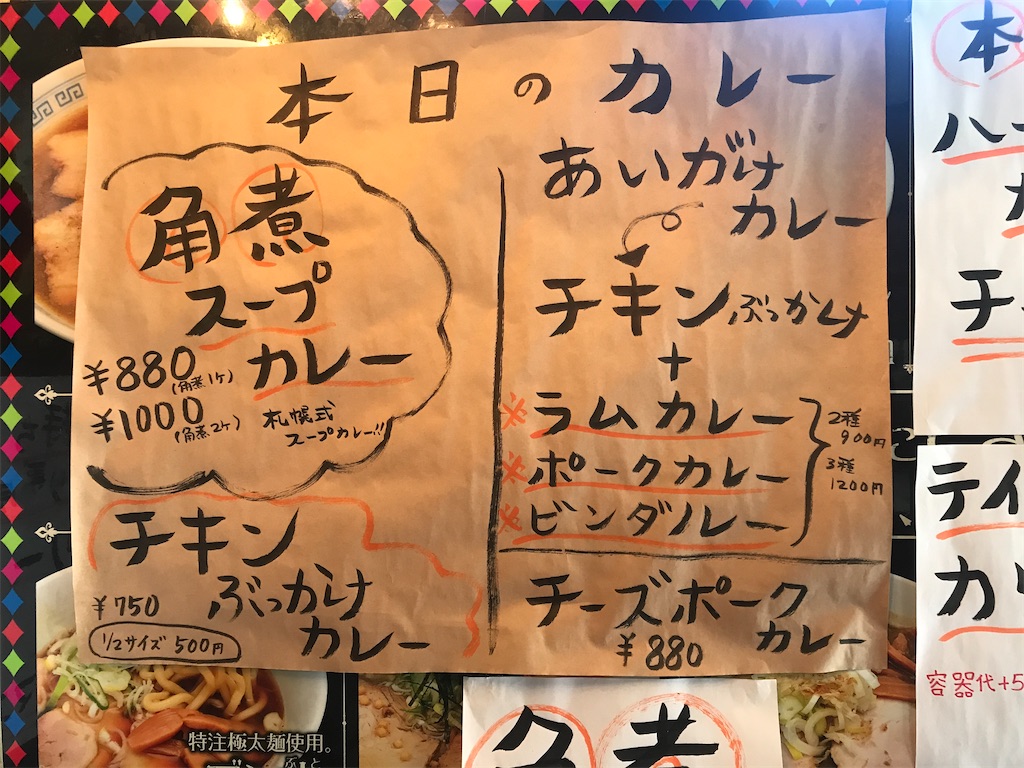 本日のカレー
角煮
スープ
カレー
¥880(角煮1ケ)
¥1000(角煮2ケ)
札幌式
スープカレー!!
チキン
ぶっかけ
カレー
¥750
1/2サイズ 500円
あいがけ
カレー
チキンぶっかけ
+
※ラムカレー
※ポークカレー
※ビンダルレー
2種
900円
3種
1200円
チーズポーク
カレー
¥880
本
チ
テイ
カ
容器代+5
特注極太麺使用。
角煮